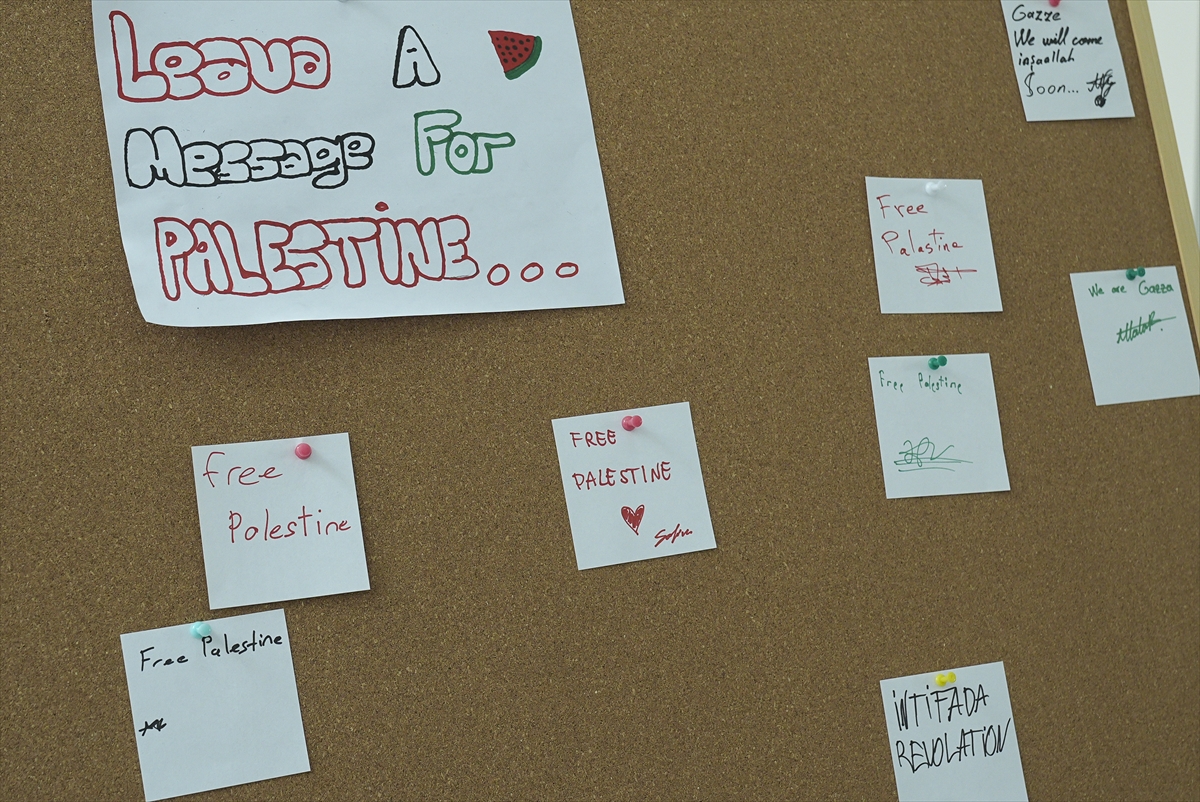 Leava A
Message For
PALESTİNE...
Gazze
We will come
inşaallah
Soon...
Free
Palastine
We are Gazza
Free Palestine
FREE
PALESTINE
free
Palestine
Free Palestine
İNTİFADA
REVOLATİON